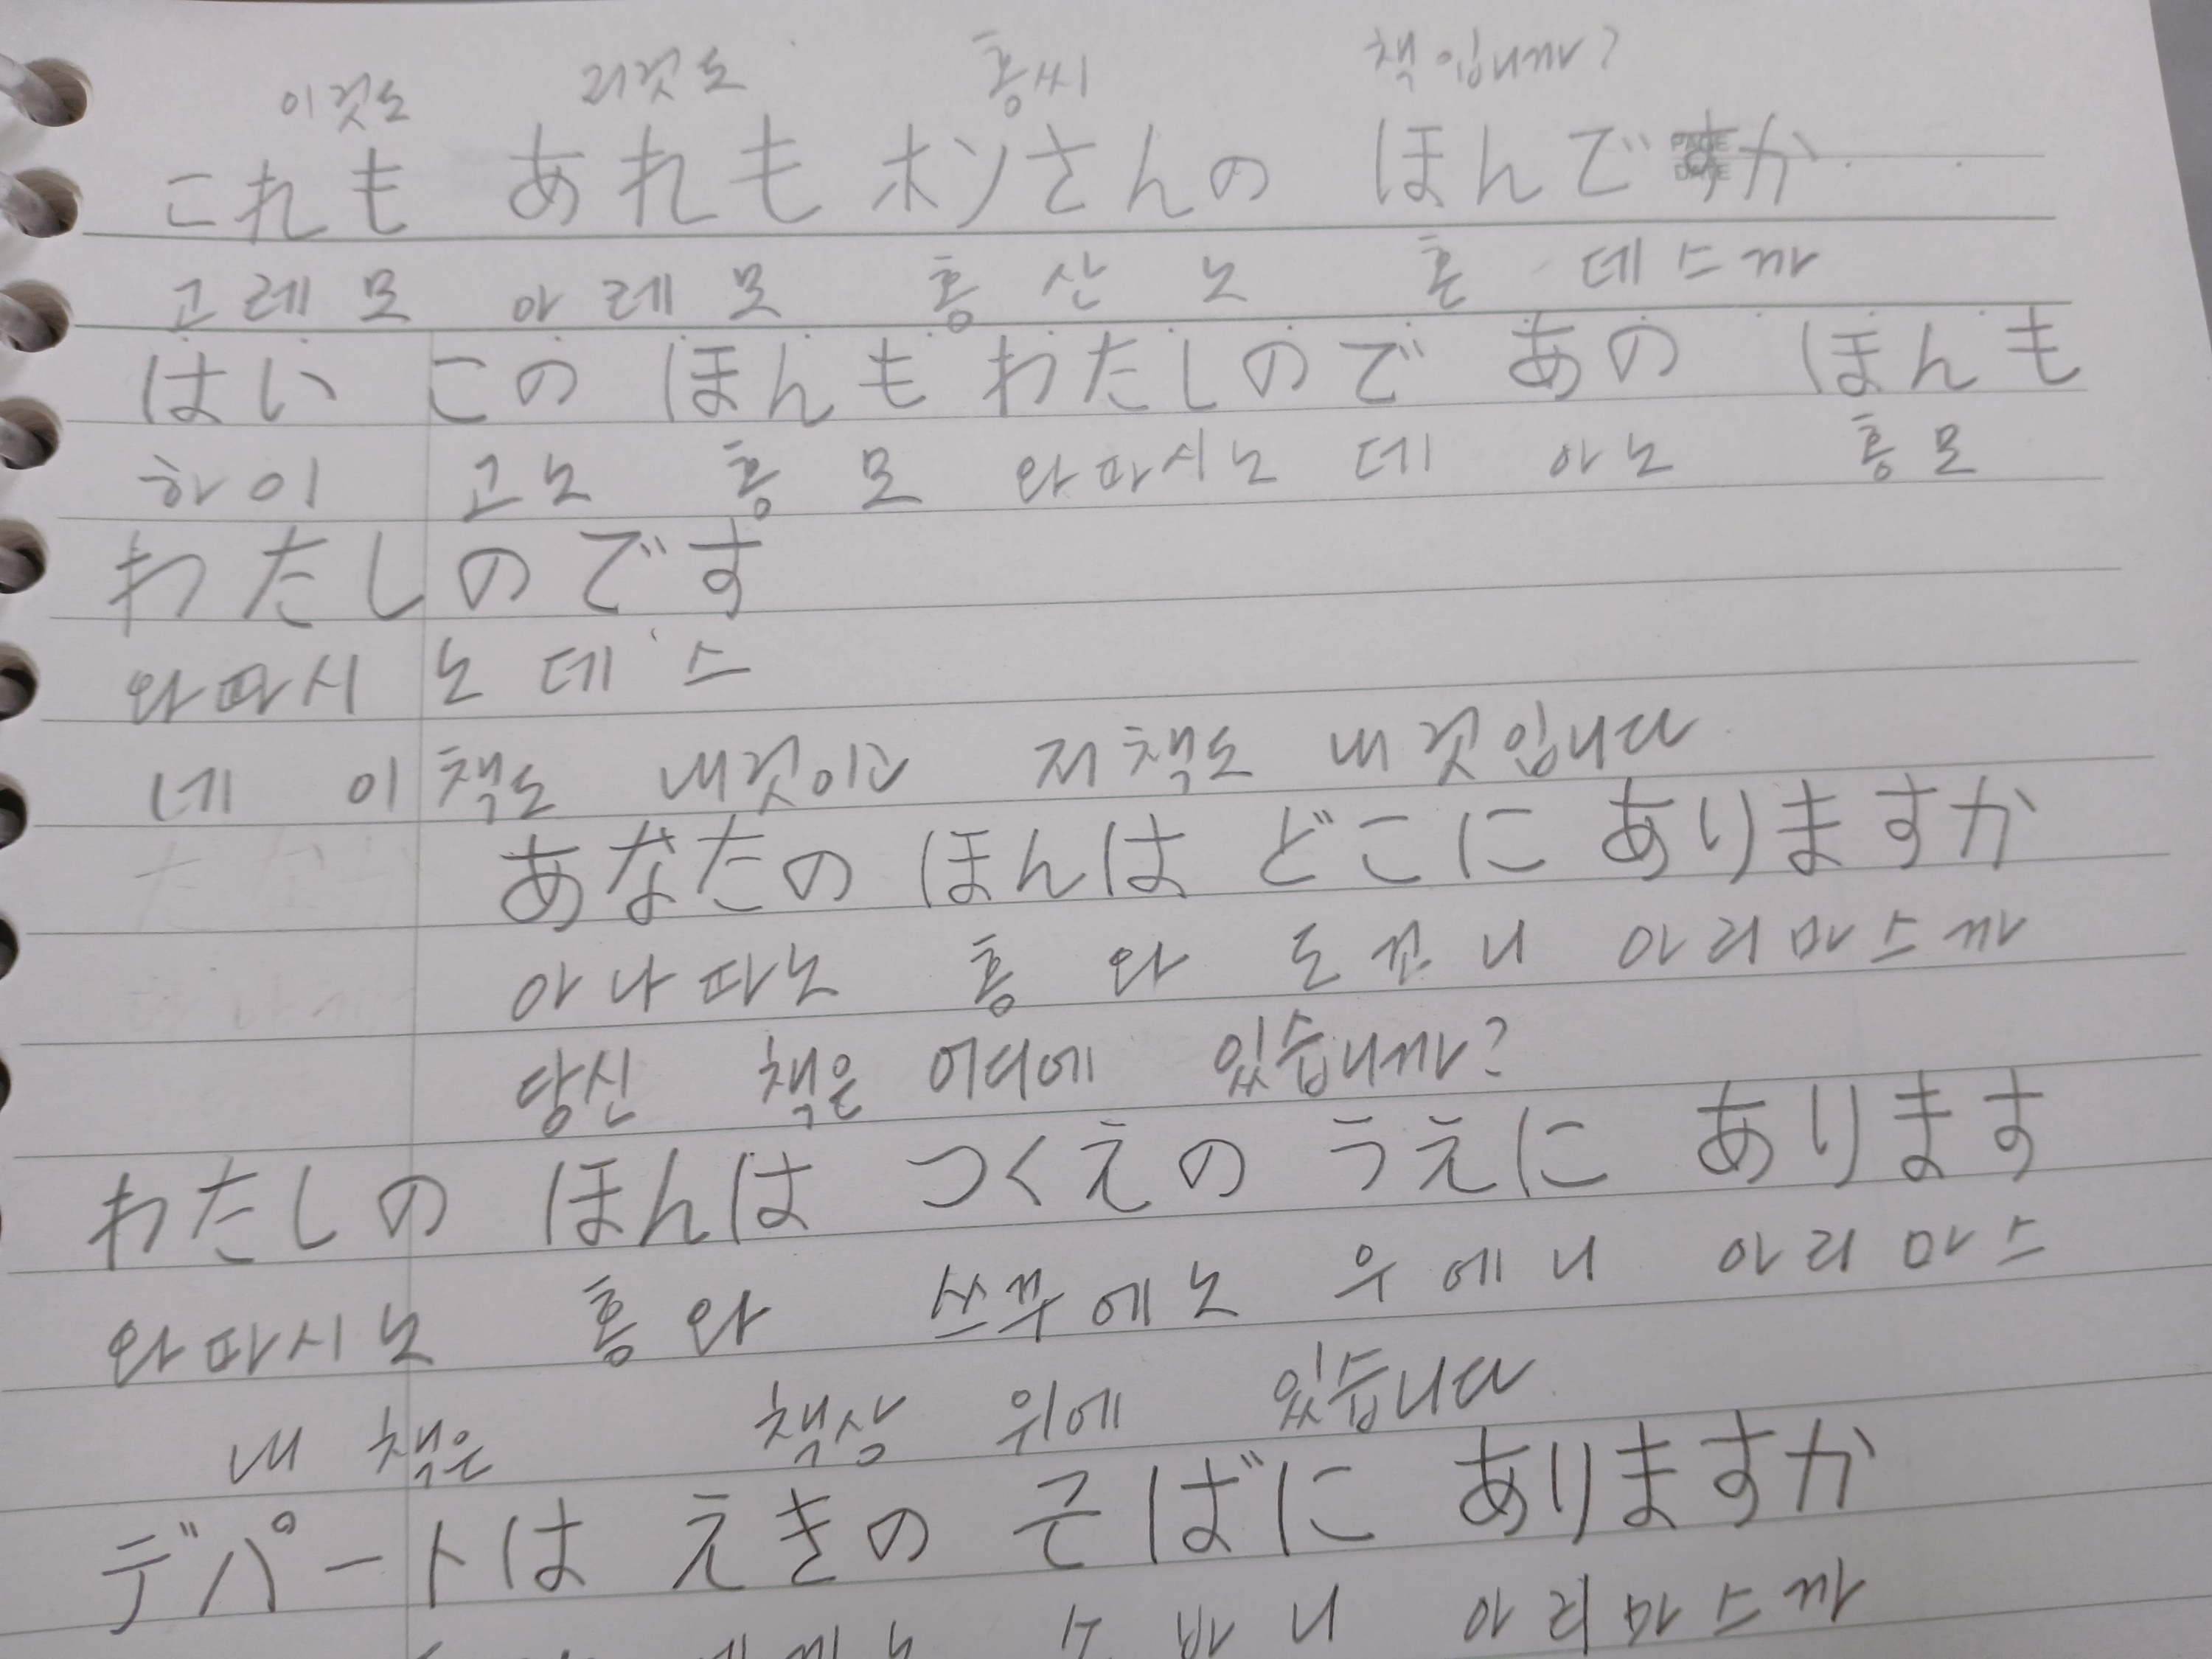 이것도 저것도 홍씨 책입니까?
これも あれも ホンさんの ほんですか
고레모 아레모 홍산노 혼 데스까
はい この ほんも わたしので あの ほんも
하이 고노 홍모 와따시노데 아노 홍모
わたしのです
와따시노데스
네 이책도 내것이고 저책도 내것입니다
あなたの ほんは どこに ありますか
아나따노 홍와 도꼬니 아리마스까
당신 책은 어디에 있습니까?
わたしの ほんは つくえの うえに あります
와따시노 홍와 쓰꾸에노 우에니 아리마스
내 책은 책상 위에 있습니다
デパートは えきの そばに ありますか
바니 아리마스까